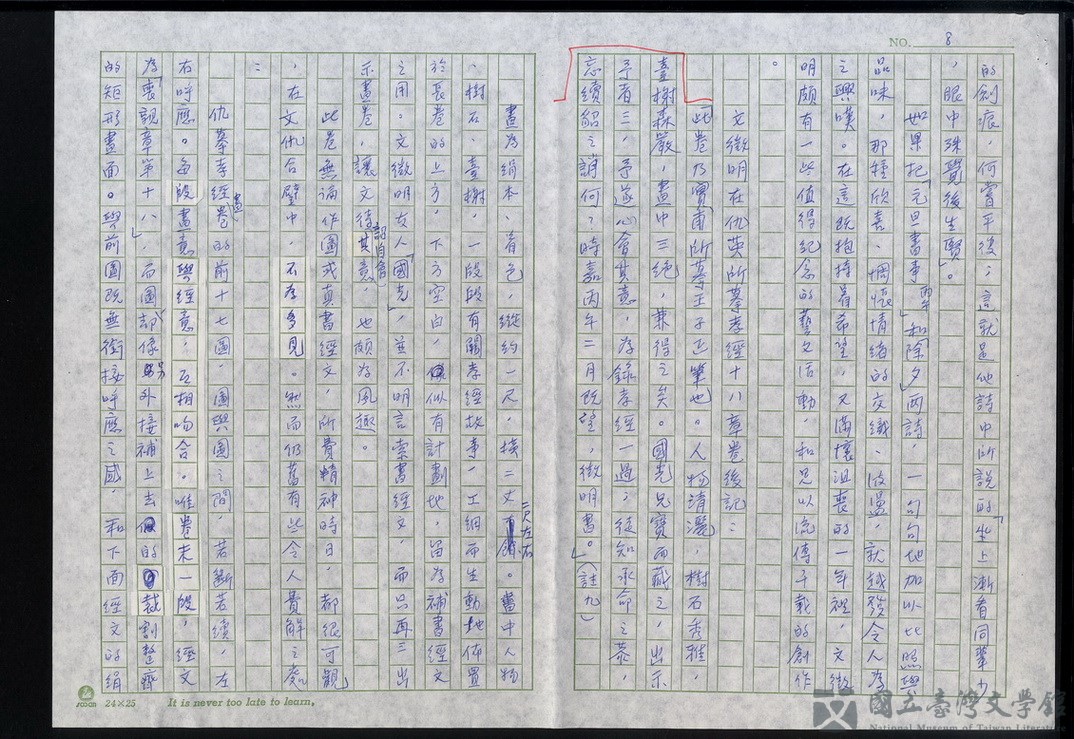 NO. 8
的創痕，何嘗平復；這就是他詩中所說的「坐上漸看同輩少
，眼中殊覺後生賢」。
如果把「元旦書事」和「丙午除夕」兩詩，一句句地加以比照與
品味，那種欣喜、惆悵情緒的交織、激盪，就越發令人為
之興嘆。在這既抱持着希望，又滿懷沮喪的一年裡，文徵
明頗有一些值得紀念的藝文活動，和足以流傳千載的創作
。
文徵明在仇英所摹孝經十八章卷後記：
「此卷乃實甫所摹王子正筆也。人物清灑，樹石秀雅，
臺榭森嚴，畫中三絕，兼得之矣。國光兄寶而藏之，出示
予者三，予遂心會其意，為錄孝經一過；徒知承命之恭，
忘續貂之誚何？時嘉丙午二月既望，徵明書。」（註九）
畫為絹本、着色，縱約一尺，橫二丈二尺左右。畫中人物
、樹石、臺榭，一段段有關孝經故事，工細而生動地佈置
於長卷的上方，下方空白，似有計劃地，留為補書經文
之用。文徵明友人「國光」，並不明言索書經文，而只再三出
示畫卷，讓文待詔自會其意，也頗為風趣。
此卷無論作圖或真書經文，所費精神時日，都很可觀
，在文仇合璧中，不存多見。然而仍舊有些令人費解之處
：
仇摹孝經畫卷的前十七圖，圖與圖之間，若斷若續，左
右呼應。每段畫意與經意，互相吻合。唯卷末一段，經文
為「喪親章第十八」，而圖却像另外接補上去的裁割整齊
的矩形畫面。與前圖既無銜接呼應之感，和下面經文的絹
24×25 It is never too late to learn,
國立臺灣文學館
National Museum of Taiwan Literature